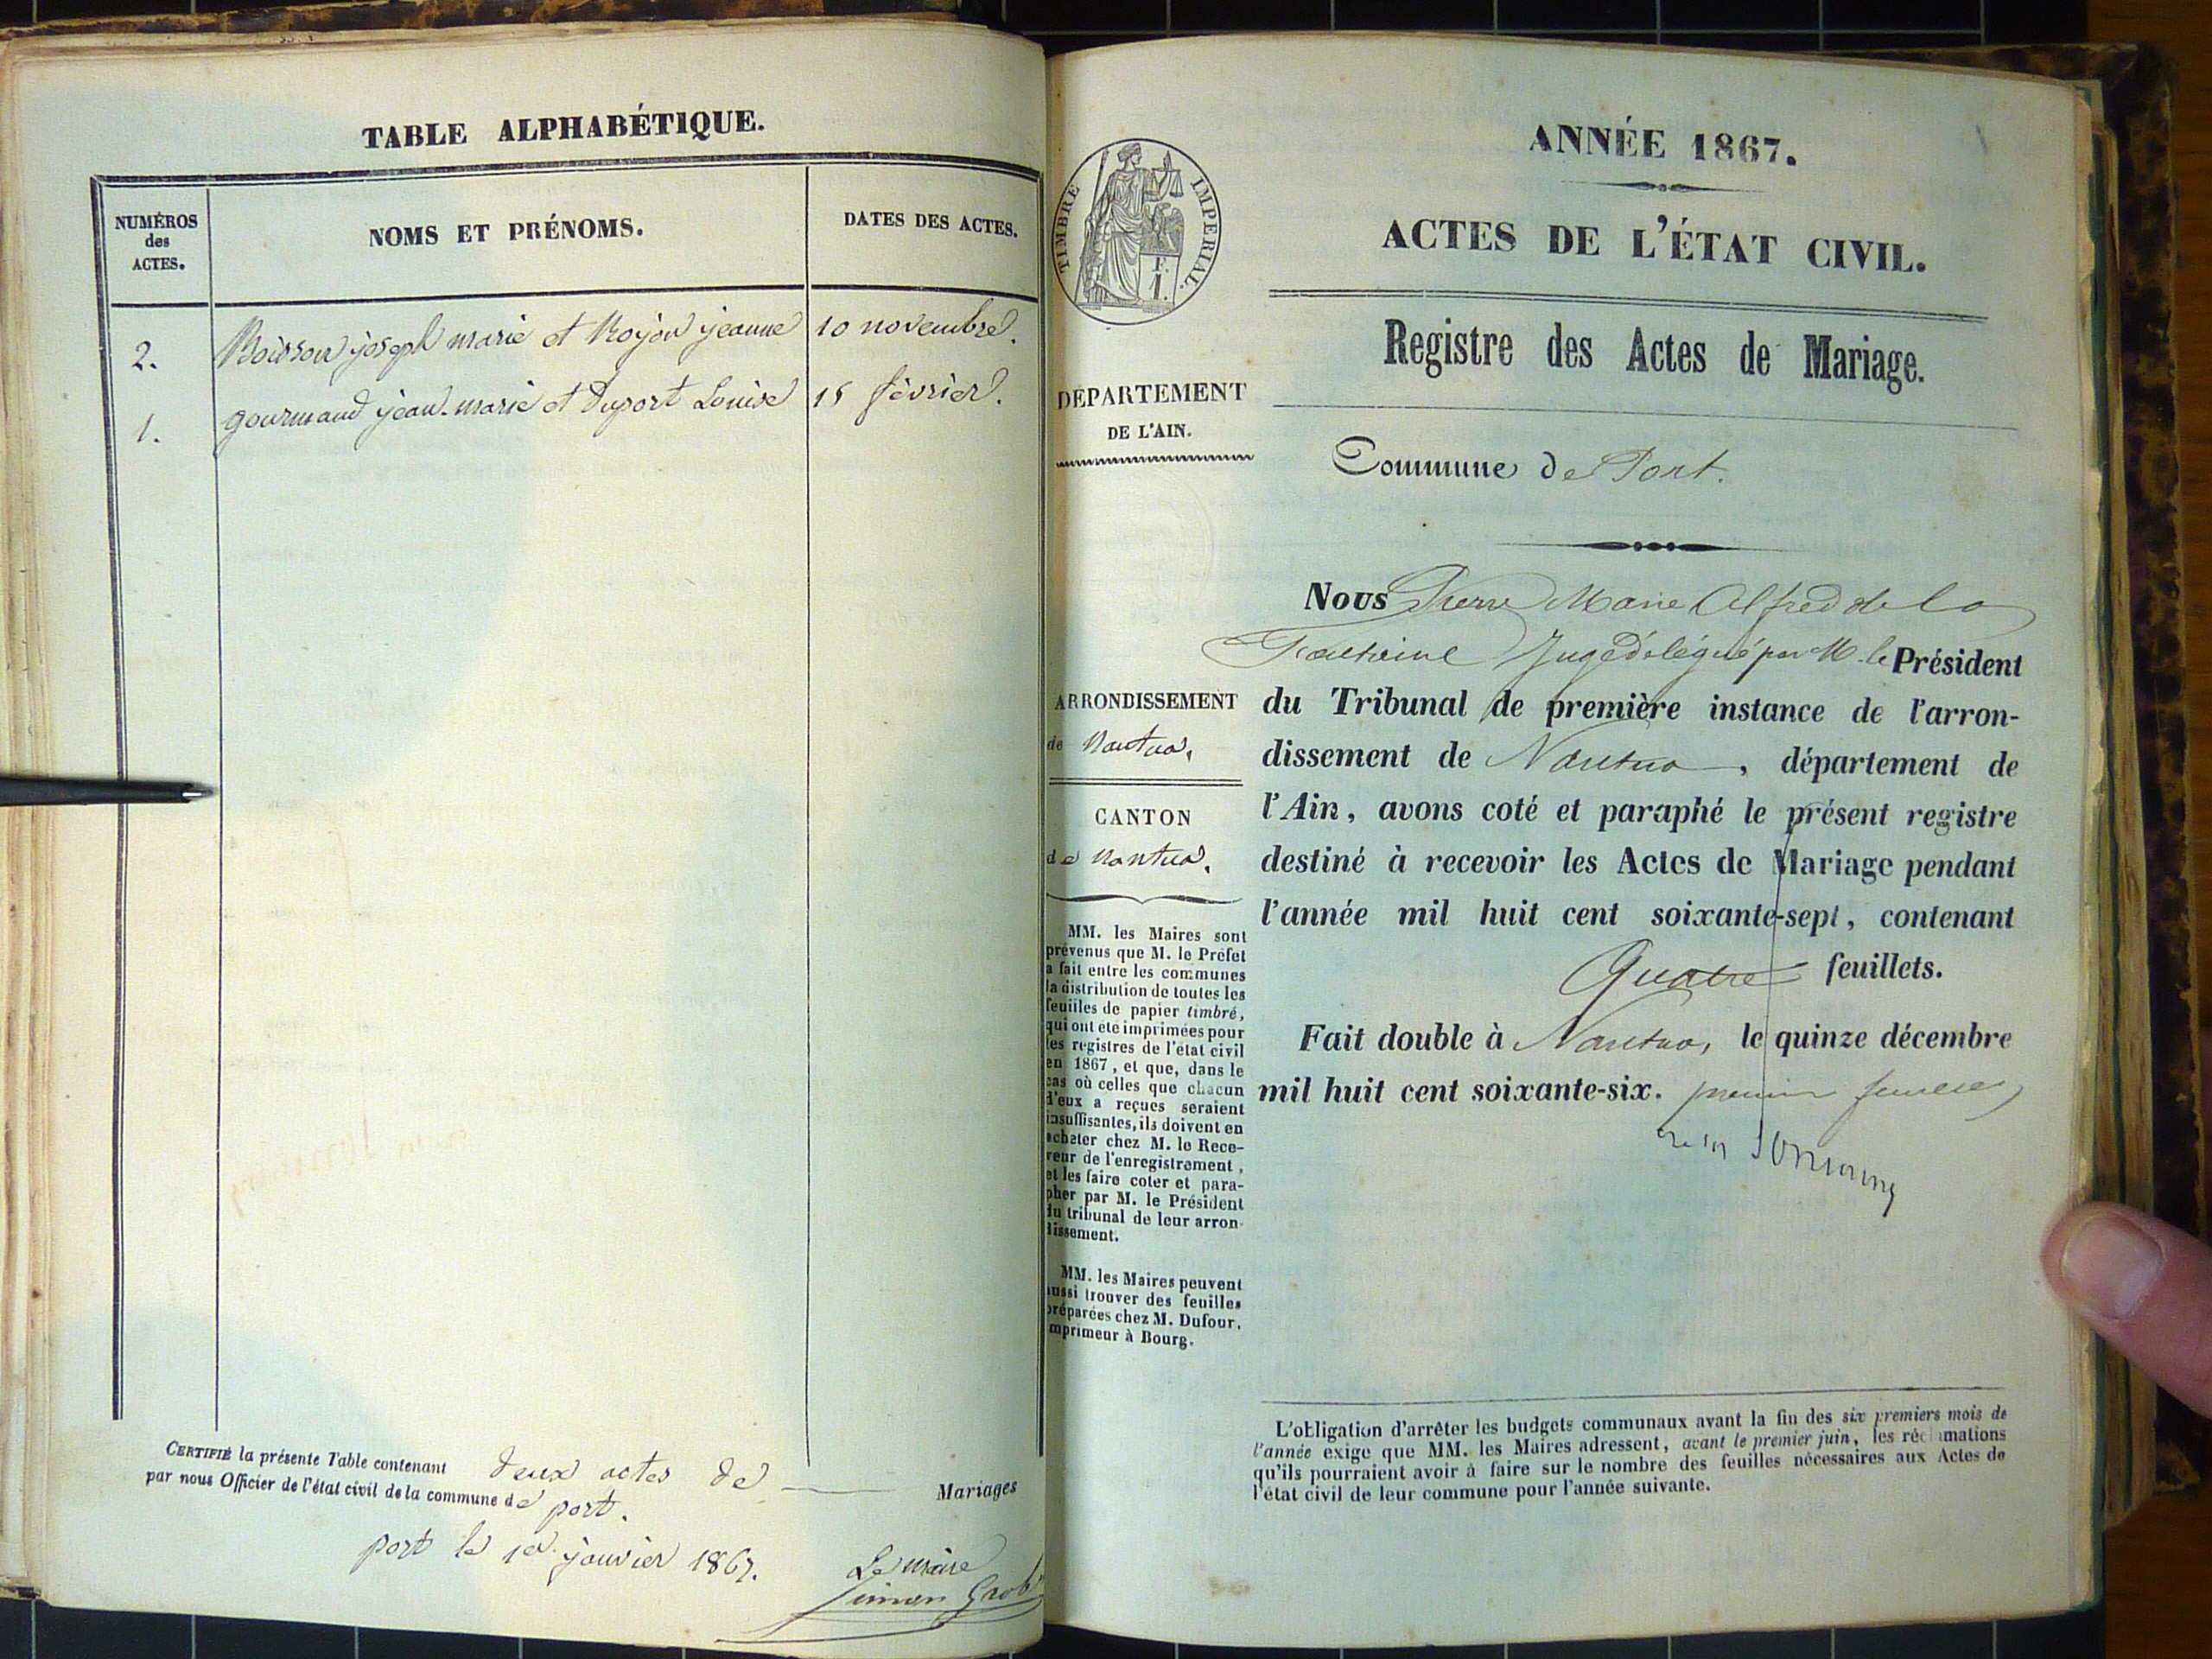 TABLE ALPHABÉTIQUE.
NUMÉROS
des
ACTES.
NOMS ET PRÉNOMS.
DATES DES ACTES.
2. Boisson joseph marie et Rojon jeanne 10 novembre.
1. gourmand jean-marie et Duport Louise 15 février.
CERTIFIÉ la présente Table contenant deux actes de Mariages
par nous Officier de l'état civil de la commune de port.
port le 1er janvier 1867.
Le maire
Simon
TIMBRE IMPERIAL.
F.
1.
DÉPARTEMENT
DE L'AIN.
ARRONDISSEMENT
de Nantua.
CANTON
de Nantua.
MM. les Maires sont
prévenus que M. le Préfet
a fait entre les communes
la distribution de toutes les
feuilles de papier timbré,
qui ont été imprimées pour
les registres de l'état civil
en 1867, et que, dans le
cas où celles que chacun
d'eux a reçues seraient
insuffisantes, ils doivent en
acheter chez M. le Rece-
veur de l'enregistrement,
et les faire coter et para-
pher par M. le Président
du tribunal de leur arron-
dissement.
MM. les Maires peuvent
aussi trouver des feuilles
préparées chez M. Dufour,
imprimeur à Bourg.
ANNÉE 1867.
ACTES DE L'ÉTAT CIVIL.
Registre des Actes de Mariage.
Commune de Port.
Nous Pierre Marie Alfred de la
Juge délégué par M. le Président
du Tribunal de première instance de l'arron-
dissement de Nantua, département de
l'Ain, avons coté et paraphé le présent registre
destiné à recevoir les Actes de Mariage pendant
l'année mil huit cent soixante-sept, contenant
Quatre feuillets.
Fait double à Nantua, le quinze décembre
mil huit cent soixante-six. premier
L'obligation d'arrêter les budgets communaux avant la fin des six premiers mois de
l'année exige que MM. les Maires adressent, avant le premier juin, les réclamations
qu'ils pourraient avoir à faire sur le nombre des feuilles nécessaires aux Actes de
l'état civil de leur commune pour l'année suivante.